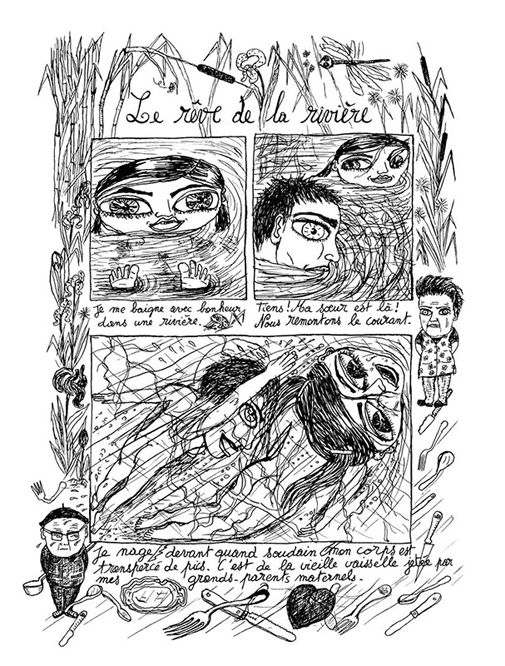 Le rêve de la rivière
Je me baigne avec bonheur
dans une rivière.
Tiens! Ma sœur est là!
Nous remontons le courant.
Je nage devant quand soudain mon corps est
transpercé de pics. C'est de la vieille vaisselle jetée par
mes grands-parents maternels.